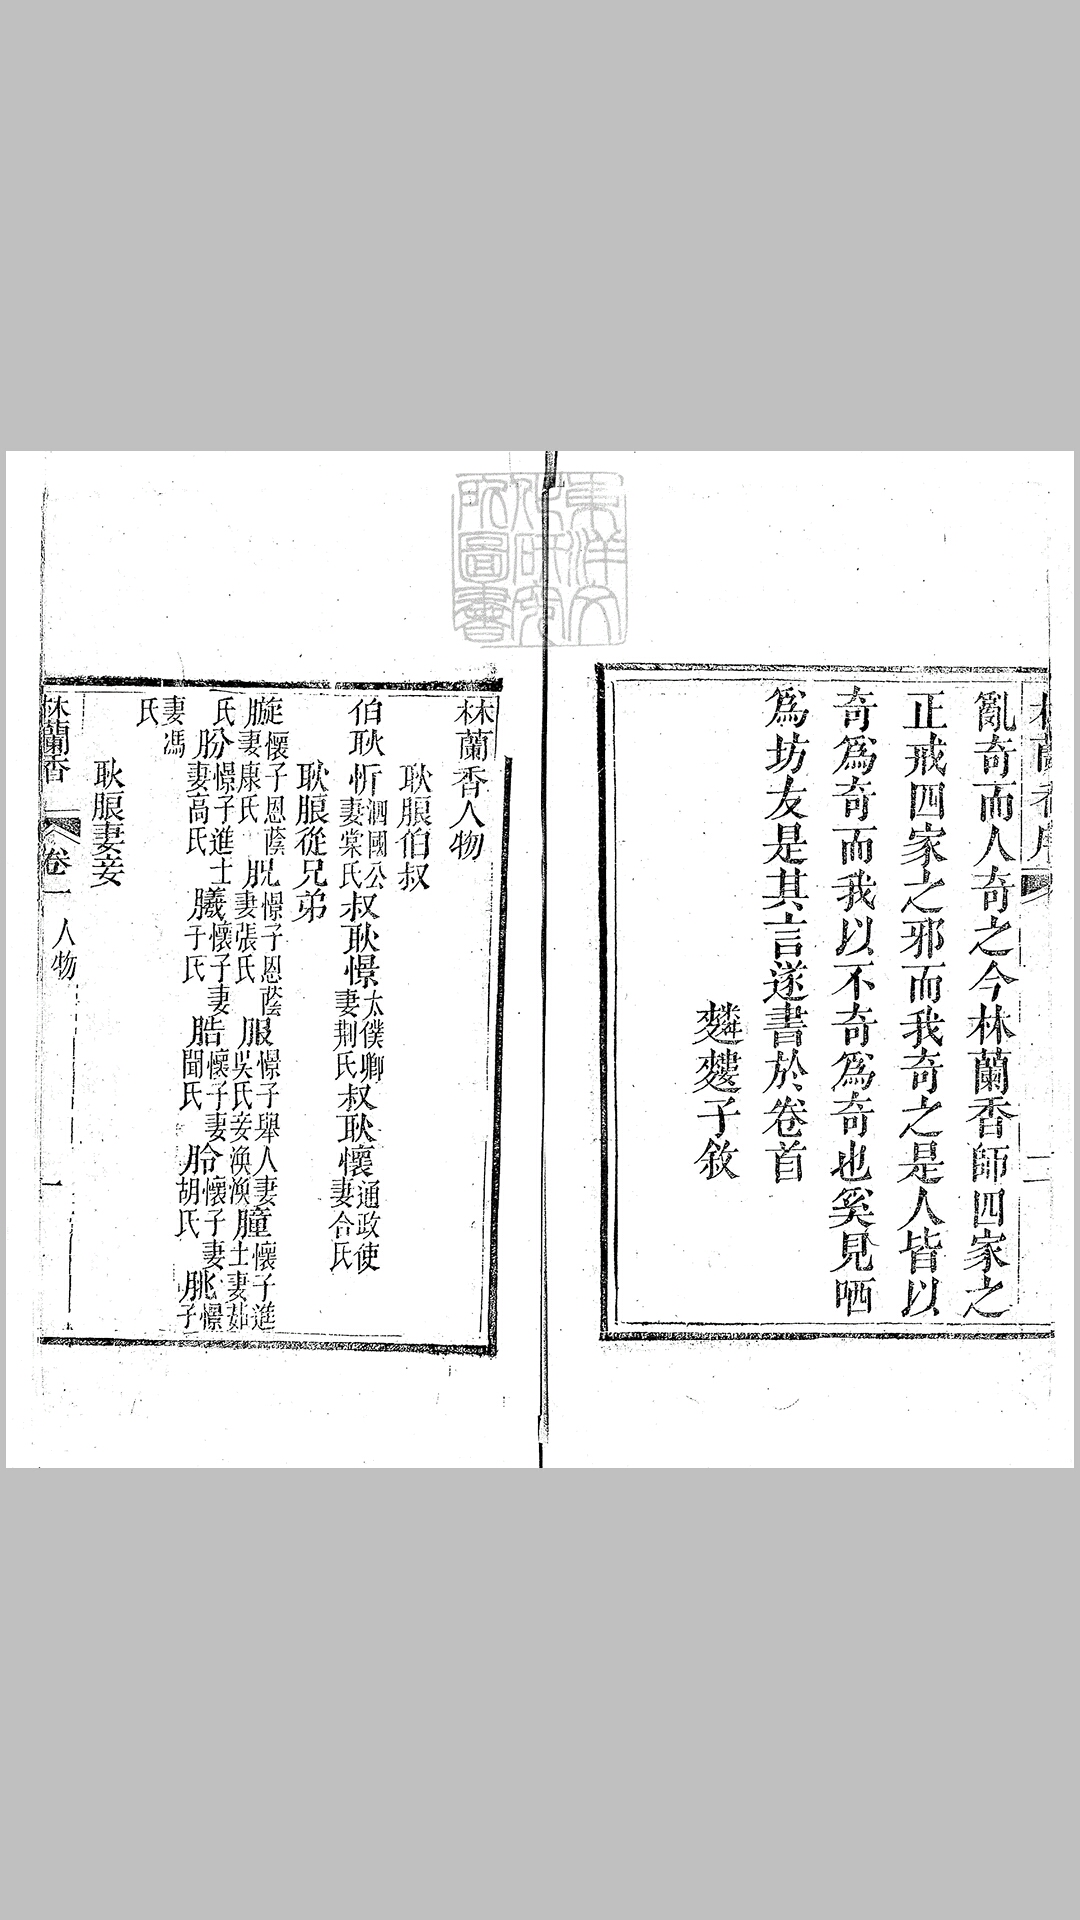 林蘭香序
二
亂奇而人奇之今林蘭香師四家之
正戒四家之邪而我奇之是人皆以
奇爲奇而我以不奇爲奇也奚見哂
爲坊友是其言遂書於卷首
䴩䴨子敘
東洋文
化研究
所圖書
林蘭香人物
耿朖伯叔
伯耿忻泗國公妻棠氏叔耿憬太僕卿妻荆氏叔耿懷通政使妻合氏
耿朖從兄弟
懷子恩蔭妻康氏 憬子恩蔭妻張氏服憬子舉人妻吳氏妾渙渙朣懷子進士妻茹
氏朌憬子進士妻高氏 懷子妻于氏 懷子妻聞氏 懷子妻胡氏朓憬子
妻馮氏
耿朖妻妾
林蘭香 卷一 人物 一